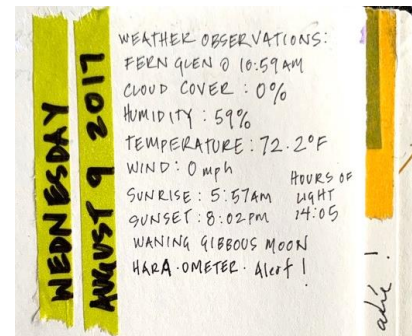 WEDNESDAY
AUGUST 9 2017
WEATHER OBSERVATIONS:
FERN GLEN @ 10:59 AM
CLOUD COVER : 0%
HUMIDITY : 59%
TEMPERATURE : 72.2°F
WIND : 0 mph
SUNRISE : 5:57AM
SUNSET : 8:02PM
HOURS OF
LIGHT
14:05
WANING GIBBOUS MOON
HARA·OMETER· Alert !